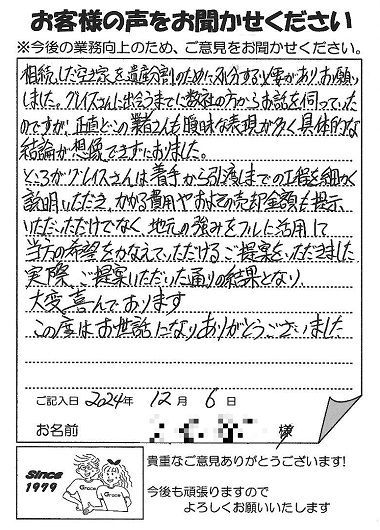 お客様の声をお聞かせください
※今後の業務向上のため、ご意見をお聞かせください。
相続した空き家を遺産分割のために処分する必要があり、お願い
しました。グレイスさんに出会うまでに数社の方からお話を伺っていた
のですが、正直どこの業者さんも曖昧な表現が多く具体的な
結論が想像できずにおりました。
ところがグレイスさんは着手から引渡しまでの工程を細かく
説明いただき、かかる費用やおおよその売却金額も提示
いただいただけでなく、地元の強みをフルに活用して
当方の希望をかなえていただけるご提案をいただきました
実際、ご提案いただいた通りの結果となり、
大変喜んでおります
この度はお世話になりありがとうございました
ご記入日 2024年 12月 6日
お名前 様
Since
1979
Grace
Grace
貴重なご意見ありがとうございます!
今後も頑張りますので
よろしくお願いいたします